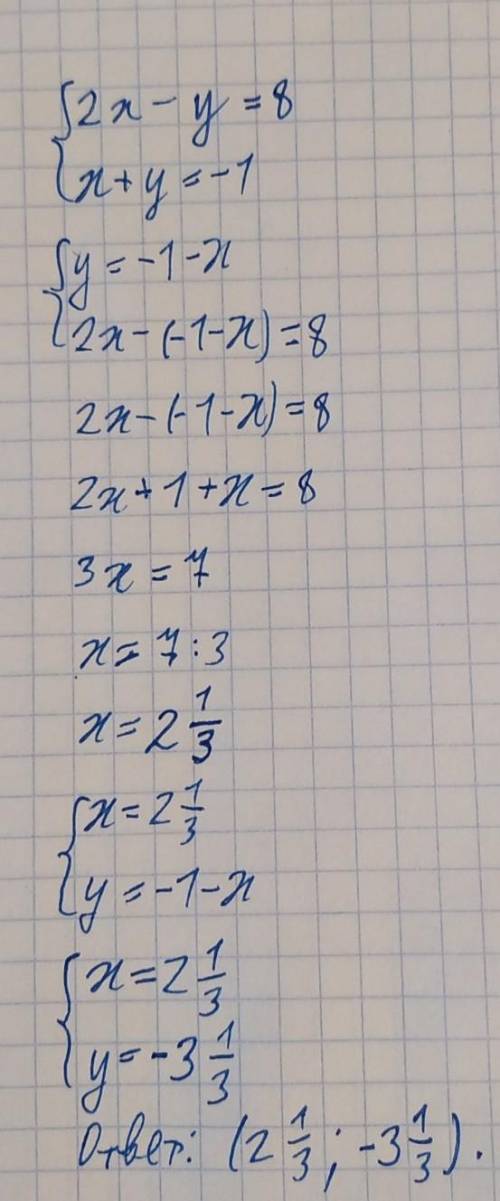 {2x - y = 8
{x + y = -1
{y = -1 - x
{2x - (-1 - x) = 8
2x - (-1 - x) = 8
2x + 1 + x = 8
3x = 7
x = 7 : 3
x = 2 1/3
{x = 2 1/3
{y = -1 - x
{x = 2 1/3
{y = -3 1/3
Ответ: (2 1/3; -3 1/3).